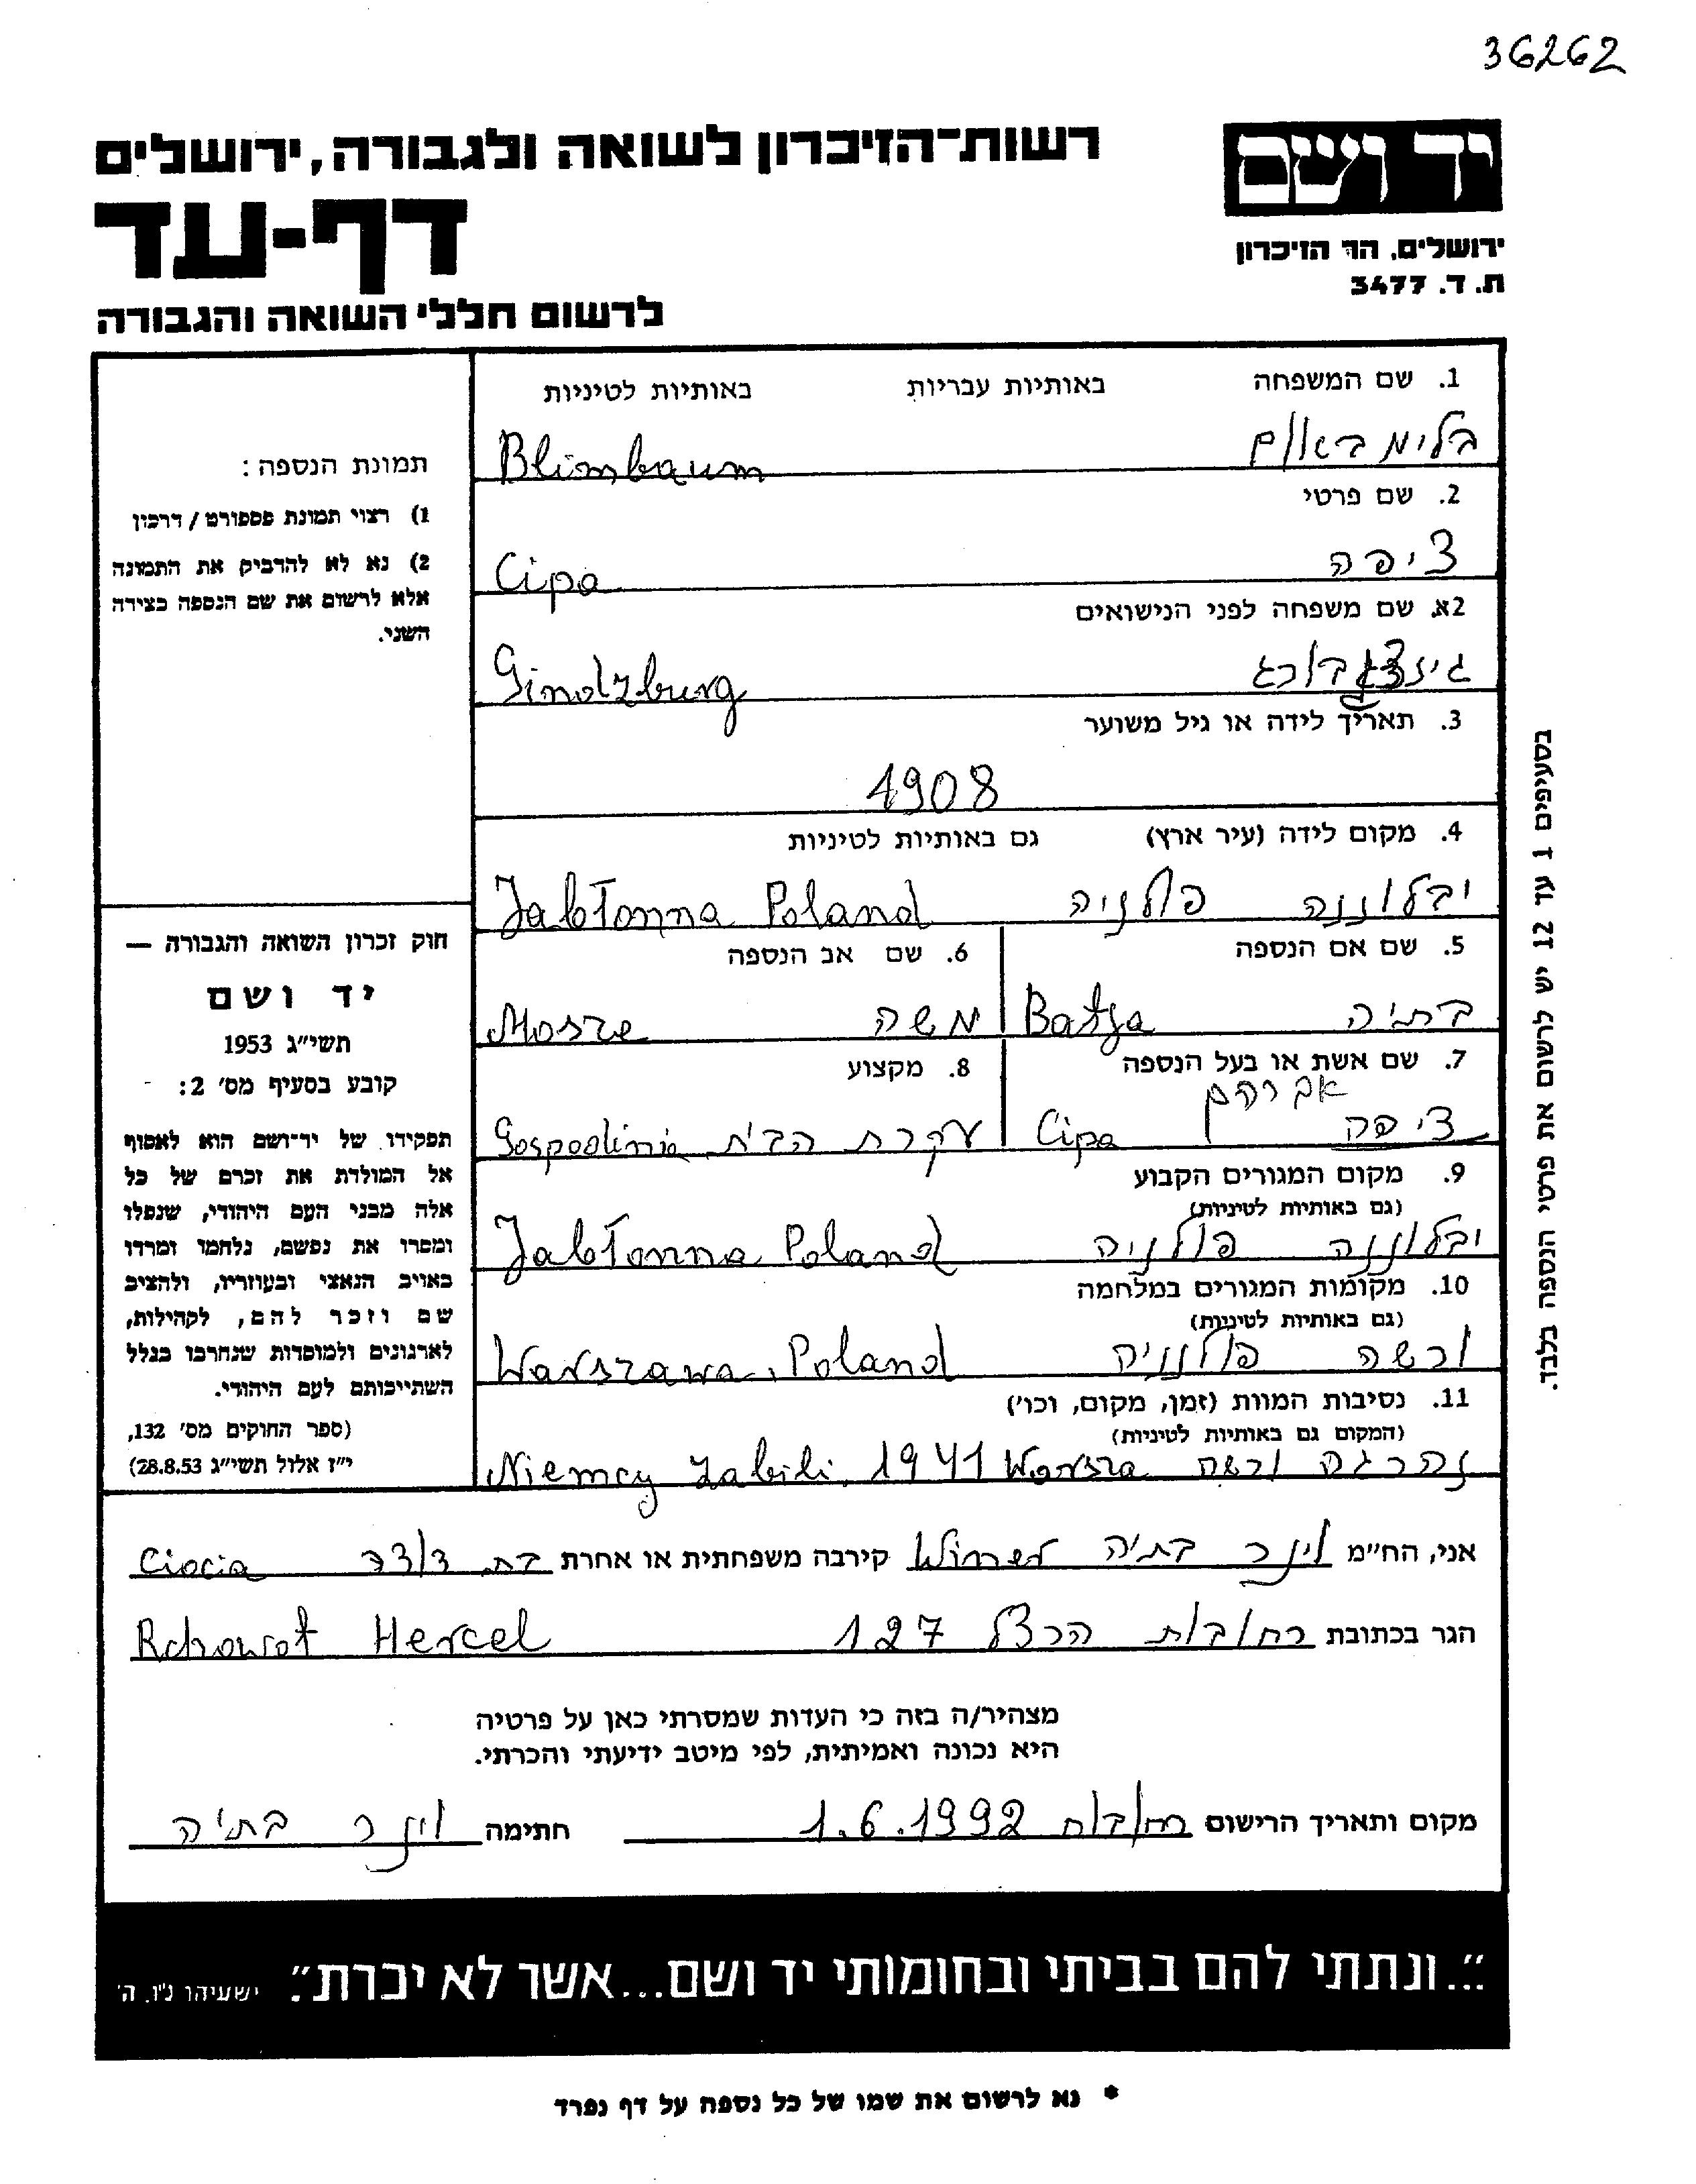 36262
יד ושם
ירושלים, הר הזיכרון
ת. ד. 3477
רשות־הזיכרון לשואה ולגבורה, ירושלים
דף-עד
לרשום חללי השואה והגבורה
1. שם המשפחה באותיות עבריות באותיות לטיניות
בלימבאום Blimbaum
2. שם פרטי
ציפה Cipa
2א. שם משפחה לפני הנישואים
Gindzburg
3. תאריך לידה או גיל משוער
1908
4. מקום לידה (עיר ארץ) גם באותיות לטיניות
יבלוננה פולניה Jabłonna Poland
5. שם אם הנספה 6. שם אב הנספה
בתיה Batja משה Mosze
7. שם אשת או בעל הנספה 8. מקצוע
אברהם
ציפה Cipa עקרת הבית Gospodinia
9. מקום המגורים הקבוע
(גם באותיות לטיניות)
יבלוננה פולניה Jabłonna Poland
10. מקומות המגורים במלחמה
(גם באותיות לטיניות)
ורשה פולניה Warszawa, Poland
11. נסיבות המוות (זמן, מקום, וכו׳)
(המקום גם באותיות לטיניות)
נהרגה ורשה Warsza 1941 Niemcy zabili
תמונת הנספה:
1) רצוי תמונת פספורט / דרכון
2) נא לא להדביק את התמונה
אלא לרשום את שם הנספה בצידה
השני.
חוק זכרון השואה והגבורה —
יד ושם
תשי״ג 1953
קובע בסעיף מס׳ 2:
תפקידו של יד־ושם הוא לאסוף
אל המולדת את זכרם של כל
אלה מבני העם היהודי, שנפלו
ומסרו את נפשם, נלחמו ומרדו
באויב הנאצי ובעוזריו, ולהציב
שם וזכר להם, לקהילות,
לארגונים ולמוסדות שנחרבו בגלל
השתייכותם לעם היהודי.
(ספר החוקים מס׳ 132,
י״ז אלול תשי״ג 28.8.53)
בסעיפים 1 עד 12 יש לרשום את פרטי הנספה בלבד.
אני, החי״מ וינר בתיה Winer קירבה משפחתית או אחרת בת דודה Ciocia
הגר בכתובת רחובות הרצל 127 Rchowot Hercel
מצהיר/ה בזה כי העדות שמסרתי כאן על פרטיה
היא נכונה ואמיתית, לפי מיטב ידיעתי והכרתי.
מקום ותאריך הרישום רחובות 1.6.1992 חתימה וינר בתיה
"...ונתתי להם בביתי ובחומותי יד ושם...אשר לא יכרת". ישעיהו נ"ו, ה'
* נא לרשום את שמו של כל נספה על דף נפרד